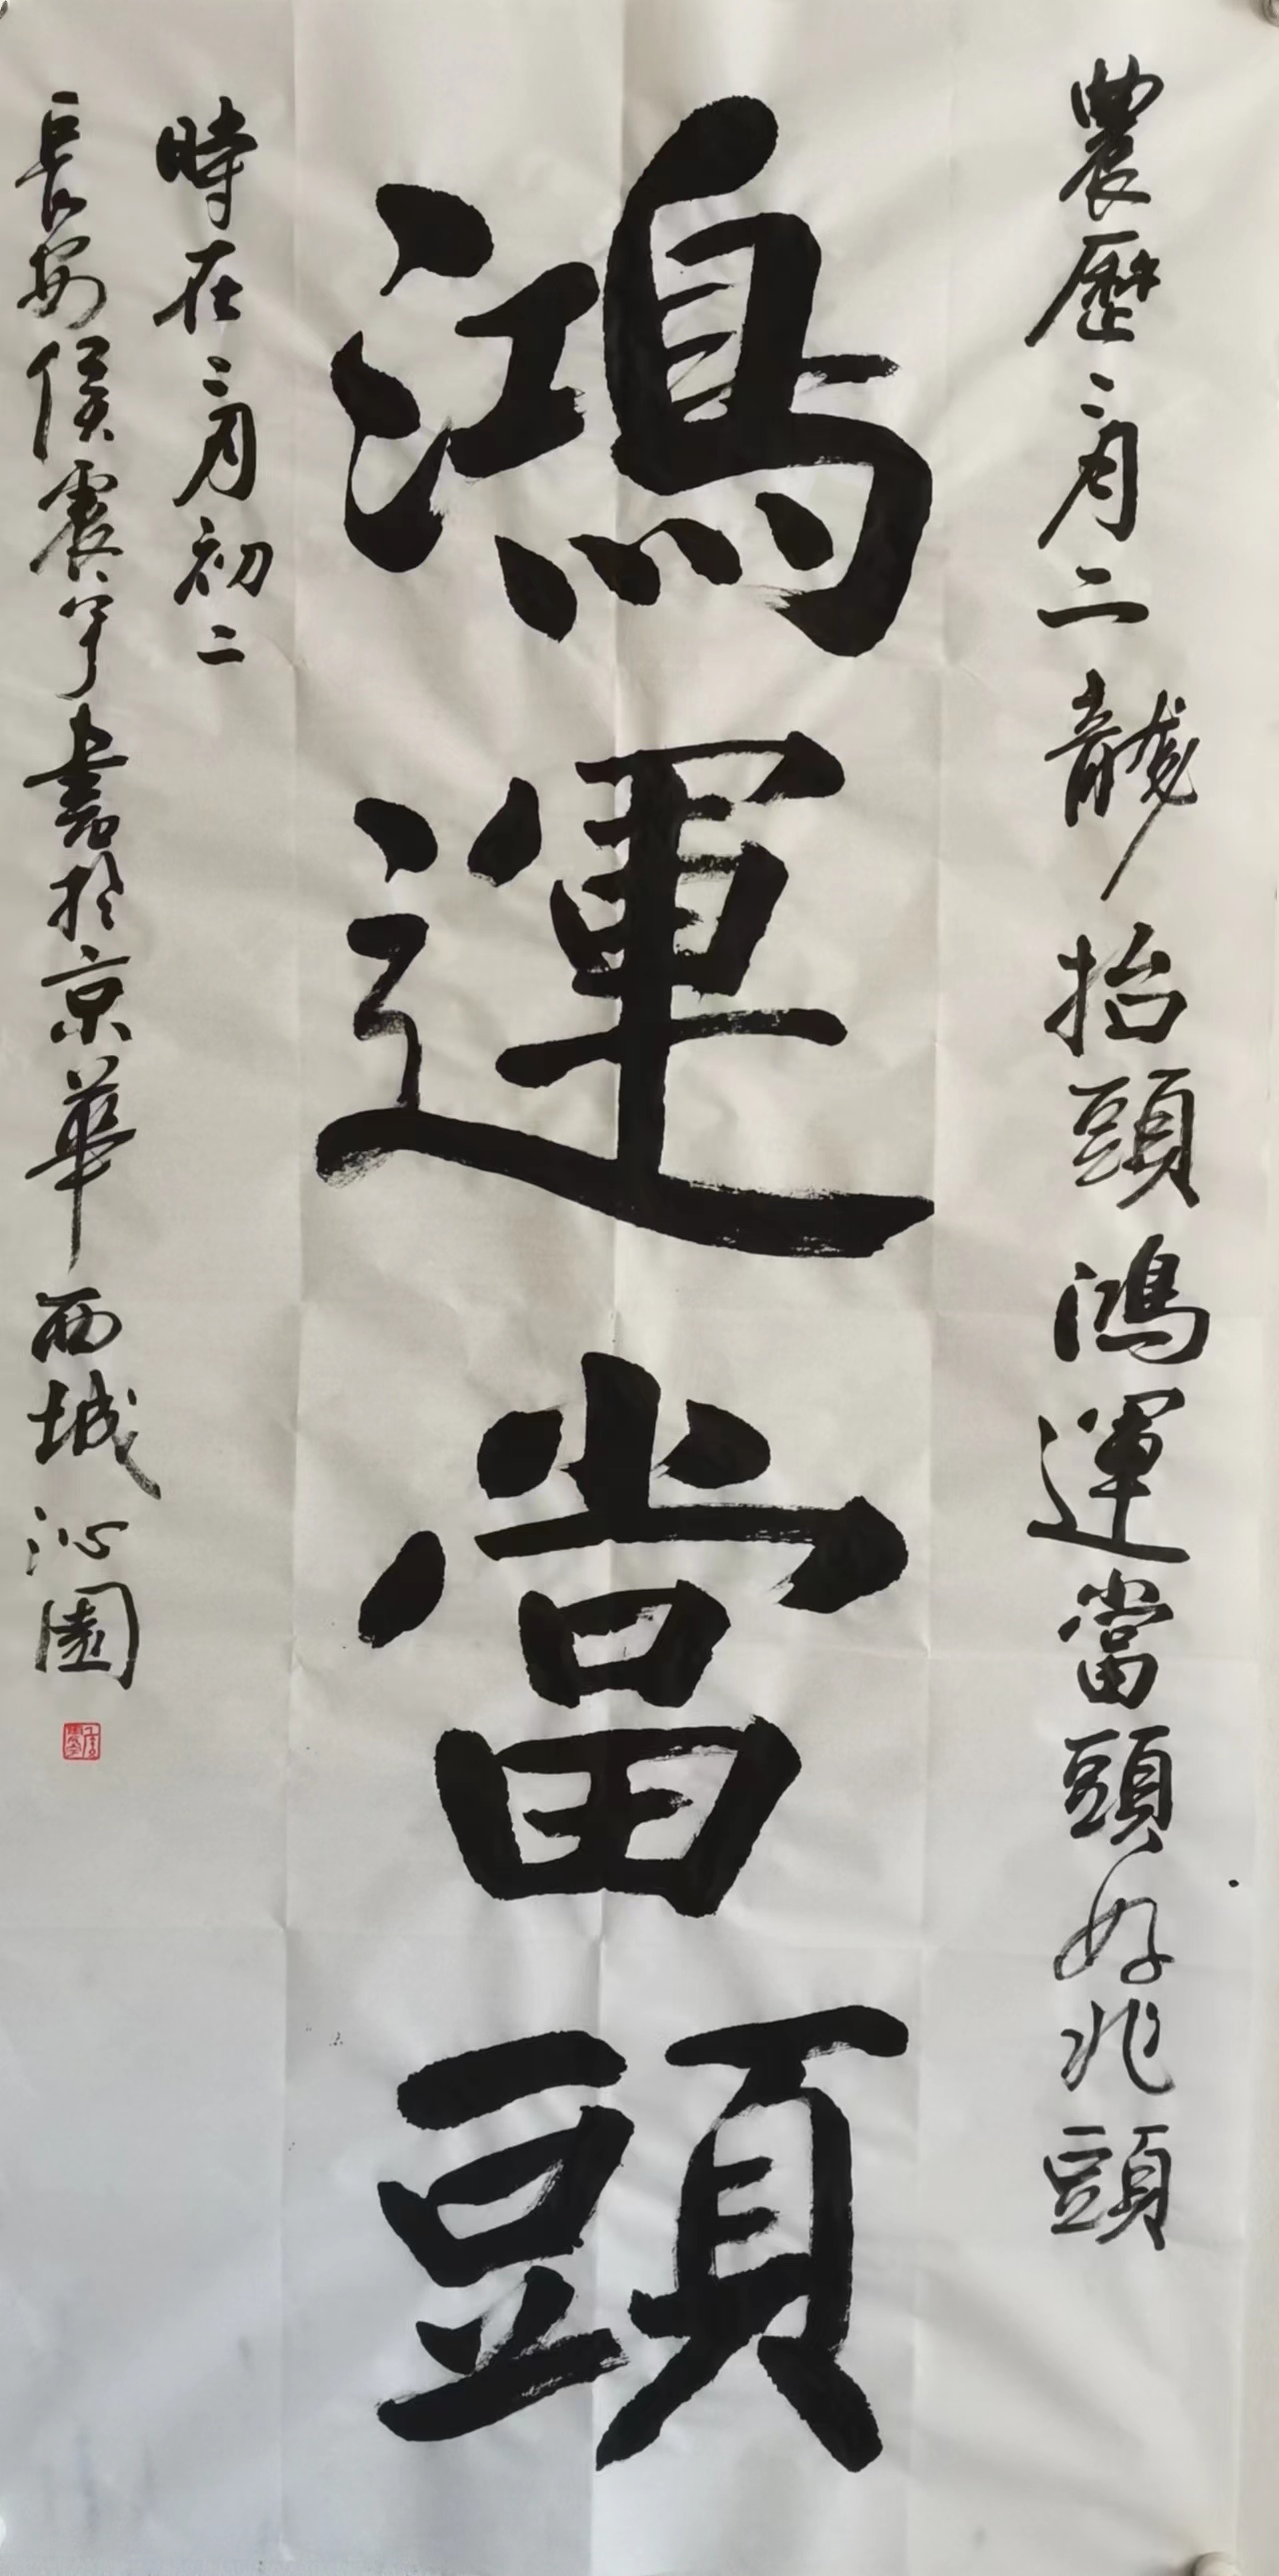 農歷二月二龍抬頭鴻運當頭好兆頭
鴻運當頭
時在二月初二
長安侯震宇書於京華西城沁園